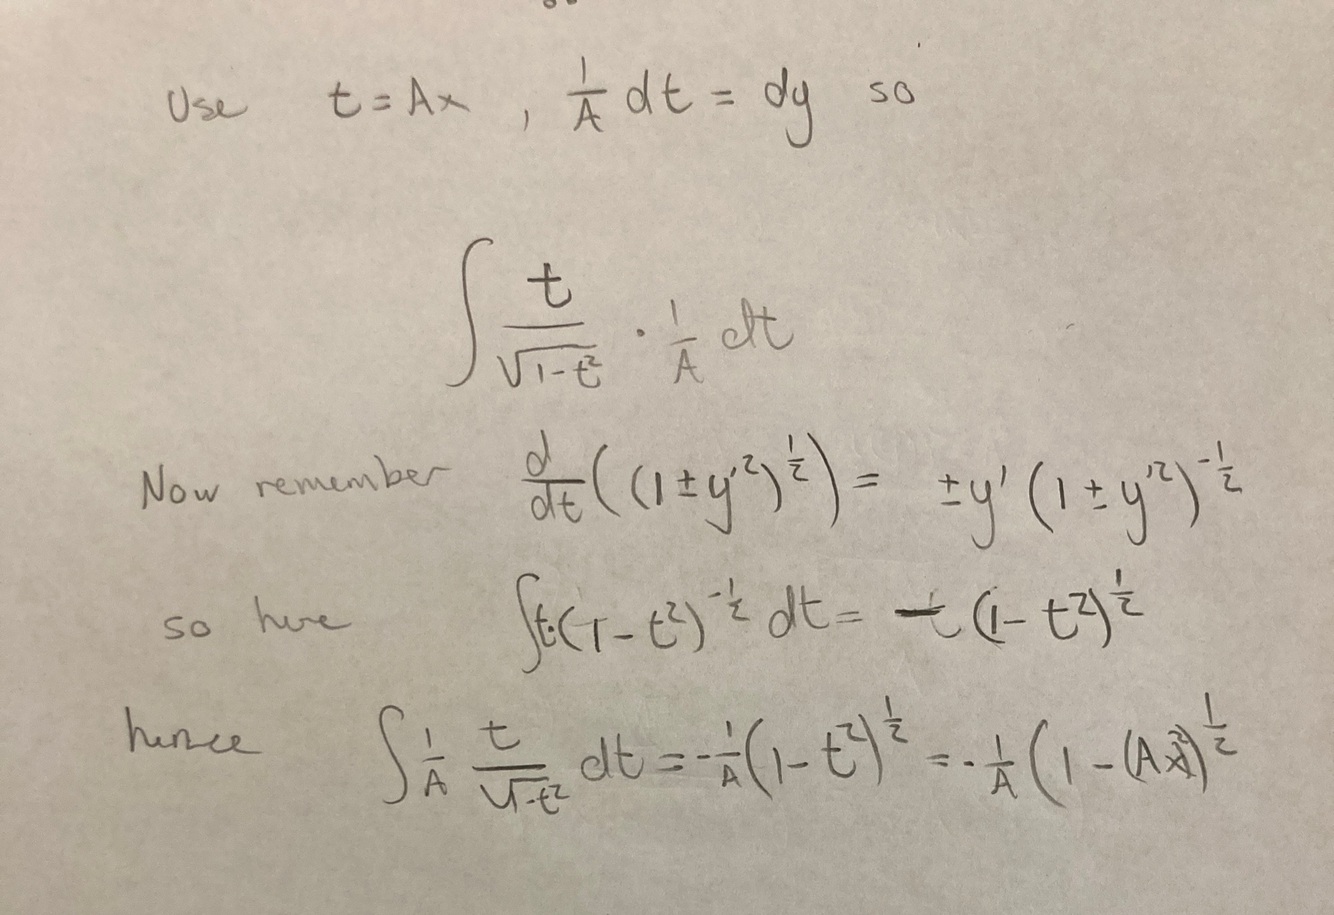 Use t = Ax , 1/A dt = dy so
∫ t/√(1-t²) · 1/A dt
Now remember d/dt ( (1 ± y'²)^(1/2) ) = ± y' (1 ± y'²)^(-1/2)
so here ∫ t·(1 - t²)^(-1/2) dt = - (1 - t²)^(1/2)
hence ∫ 1/A t/√(1-t²) dt = - 1/A (1 - t²)^(1/2) = - 1/A (1 - (Ax)²)^(1/2)